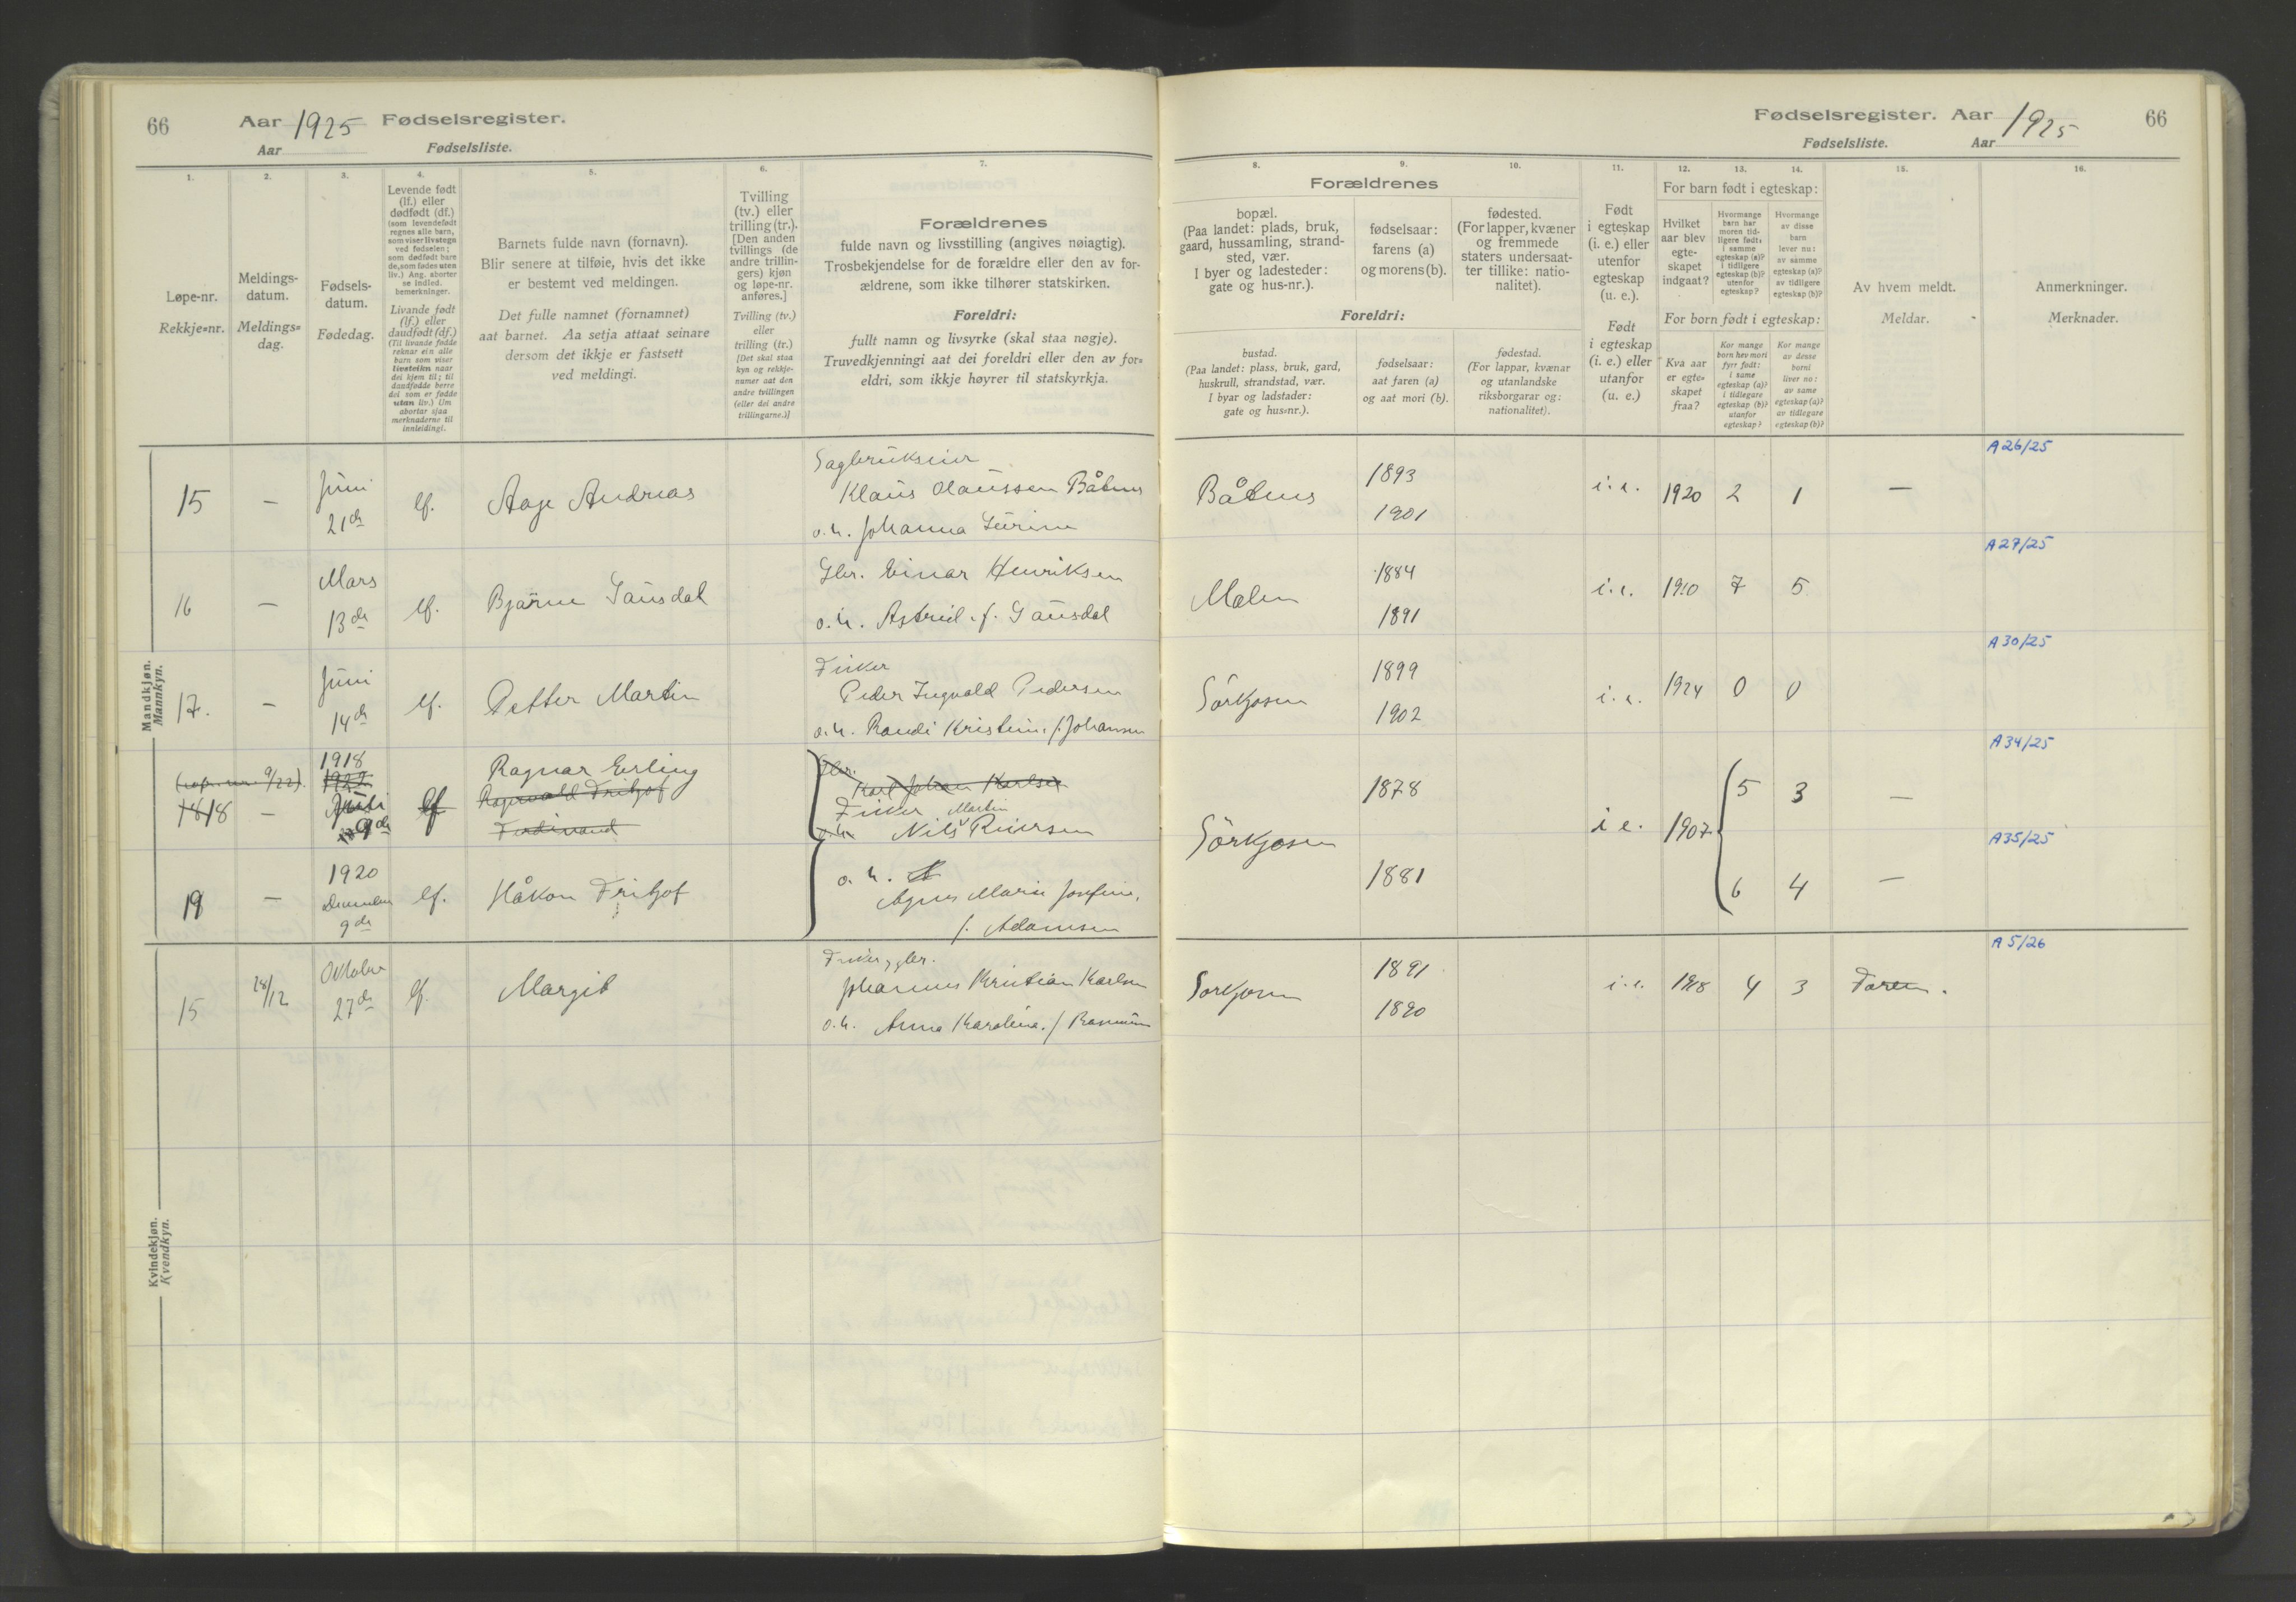 66 Aar 1925 Fødselsregister.
Aar Fødselsliste.
1. 2. 3. 4. 5. 6. 7.
Løpe-nr.
Rekkje=nr.
Meldings-
datum.
Meldings=
dag.
Fødsels-
datum.
Fødedag.
Levende født
(lf.) eller
dødfødt (df.)
(som levendefødt
regnes alle barn,
som viser livstegn
ved fødselen;
som dødfødt bare
de, som fødes uten
liv.) Ang. aborter
se indled.
bemerkninger.
Livande født
(lf.) eller
daudfødt (df.)
(Til livande fødde
reknar ein alle
barn som viser
livsteikn naar
dei kjem til; til
daudfødde berre
dei som er fødde
utan liv.) Um
abortar sjaa
merknaderne til
innleidingi.
Barnets fulde navn (fornavn).
Blir senere at tilføie, hvis det ikke
er bestemt ved meldingen.
Det fulle namnet (fornamnet)
aat barnet. Aa setja attaat seinare
dersom det ikkje er fastsett
ved meldingi.
Tvilling
(tv.) eller
trilling (tr.).
[Den anden
tvillings (de
andre trillin-
gers) kjøn
og løpe-nr.
anføres.]
Tvilling (tv.)
eller
trilling (tr.)
[Det skal staa
kyn og rekkje-
numer aat den
andre tvillingen
(eller dei andre
trillingarne.)]
Forældrenes
fulde navn og livsstilling (angives nøiagtig).
Trosbekjendelse for de forældre eller den av for-
ældrene, som ikke tilhører statskirken.
Foreldri:
fullt namn og livsyrke (skal staa nøgje).
Truvedkjenningi aat dei foreldri eller den av for=
eldri, som ikkje høyrer til statskyrkja.
Mandkjøn.
Mannkyn.
15 — Juni 21de lf. Aage Andreas
Sagbrukseier
Klaus Olaussen Båtnes
o.h. Johanna
16 — Mars 13de lf. Bjarne Gausdal
Gbr. Einar Henriksen
o.h. Astrid. f. Gausdal
17. — Juni 14de lf. Petter Martin
Fisker
Peder Ingvald Pedersen
o.h. Randi Kristine. f. Johansen
9/22)
18 — 1918 9de lf Ragnar Erling
Ragnvald Fritjof
Ferdinand
Gbr.
Karl Johan Karlsen
Fisker Martin
o.h. Nils Reiersen
19 — 1920 December 9de lf. Håkon Fritjof
o. h.
Agnes Marie Josefine,
f. Adamsen
Kvindekjøn.
Kvendkyn.
15 28/12 Oktober 27de lf. Margit
Fisker, gbr.
Johannes Kristian Karlsen
o.h. Anna Karolina. f.
Fødselsregister. Aar 1925 66
Fødselsliste. Aar
8. 9. 10. 11. 12. 13. 14. 15. 16.
Forældrenes
bopæl.
(Paa landet: plads, bruk,
gaard, hussamling, strand-
sted, vær.
I byer og ladesteder:
gate og hus-nr.).
fødselsaar:
farens (a)
og morens (b).
fødested.
(For lapper, kvæner
og fremmede
staters undersaat-
ter tillike: natio-
nalitet).
Foreldri:
bustad.
(Paa landet: plass, bruk, gard,
huskrull, strandstad, vær.
I byar og ladstader:
gate og hus=nr.).
fødselsaar:
aat faren (a)
og aat mori (b).
fødestad.
(For lappar, kvænar
og utanlandske
riksborgarar og:
nationalitet).
Født
i egteskap
(i. e.) eller
utenfor
egteskap
(u. e.).
Født
i egteskap
(i. e.) eller
utanfor
(u. e.)
For barn født i egteskap:
Hvilket
aar blev
egte-
skapet
indgaat?
Hvormange
barn har
moren tid-
ligere født:
i samme
egteskap (a)?
i tidligere
egteskap (b)?
utenfor
egteskap?
Hvormange
av disse
barn
lever nu:
av samme
egteskap (a)?
av tidligere
egteskap (b)?
For born født i egteskap:
Kva aar
er egte=
skapet
fraa?
Kor mange
born hev mori
fyrr født:
i same
egteskap (a)?
i tidlegare
egteskap (b)?
utanfor
egteskap?
Kor mange
av desse
borni
liver no:
av same
egteskap (a)?
av tidlegare
egteskap (b)?
Av hvem meldt.
Meldar.
Anmerkninger.
Merknader.
Båtnes 1893 1901 i. e. 1920 2 1 — A 26/25
1884 1891 i. e. 1910 7 5 A 27/25
Sörkjosen 1899 1902 i. e. 1924 0 0 A 30/25
Sörkjosen 1878 1881 i e. 1907 5 3 — A 34/25
6 4 — A 35/25
Sörkjosen 1891 1890 i. e. 1918 4 3 Faren. A 5/26